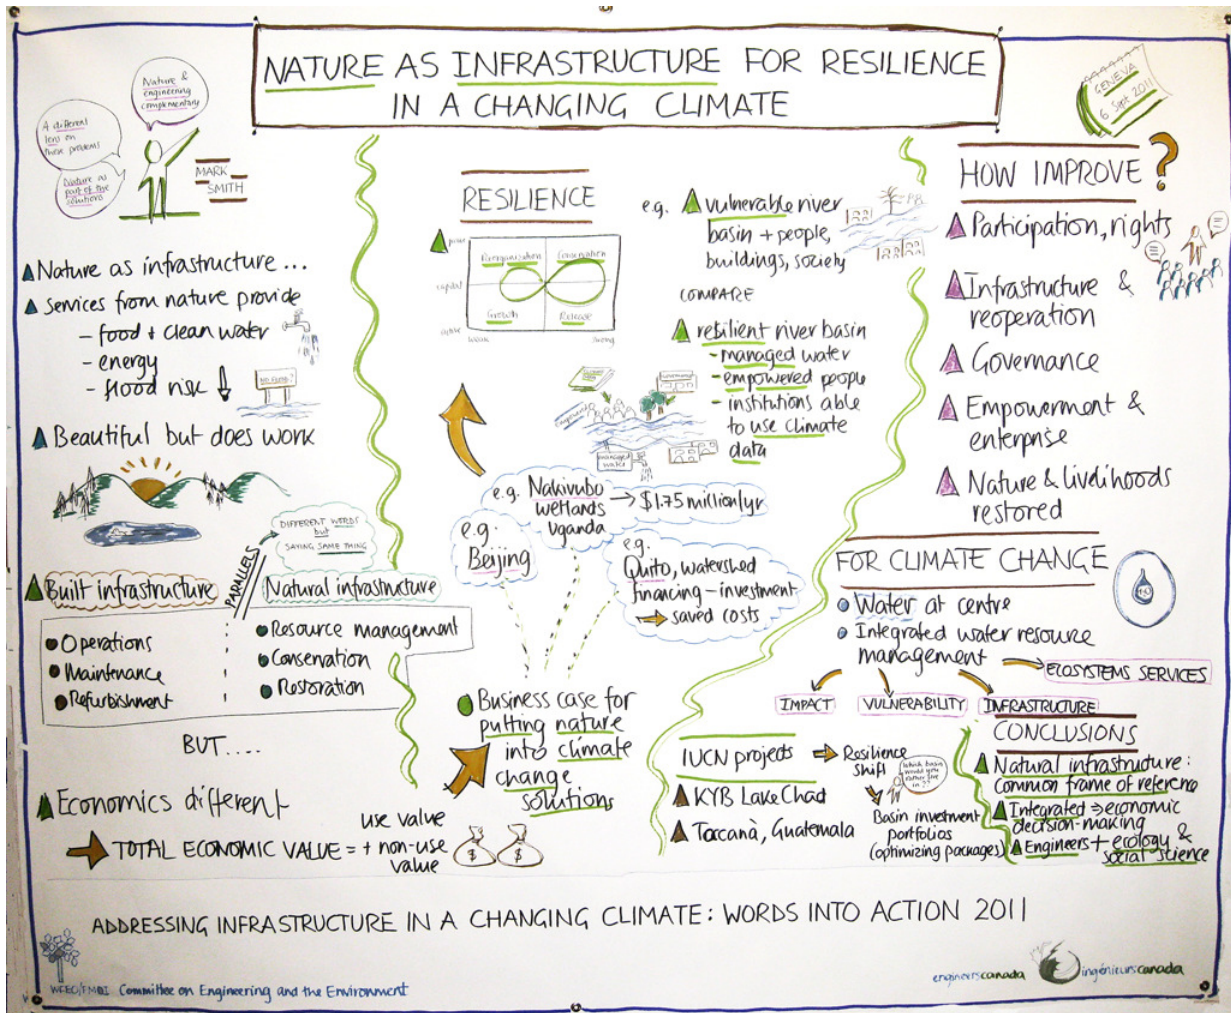 NATURE AS INFRASTRUCTURE FOR RESILIENCE
IN A CHANGING CLIMATE
GENEVA
6 Sept 2011
Nature &
engineering
complementary
A different
lens on
these problems
Nature as
part of the
solutions
MARK
SMITH
Nature as infrastructure ...
Services from nature provide
- food + clean water
- energy
- flood risk
NO FLOOD!
Beautiful but does work
DIFFERENT WORDS
but
SAYING SAME THING
PARALLELS
Built infrastructure
Operations
Maintenance
Refurbishment
Natural infrastructure
Resource management
Conservation
Restoration
BUT....
Economics different
TOTAL ECONOMIC VALUE =
use value
+ non-use
value
$
$
RESILIENCE
Reorganization
Conservation
capital
Growth
Release
weak
strong
e.g. vulnerable river
basin + people,
buildings, society
COMPARE
resilient river basin
- managed water
- empowered people
- institutions able
to use climate
data
managed
water
e.g. Nakivubo
wetlands
Uganda
→ $1.75 million/yr
e.g.
Beijing
e.g.
Quito, watershed
financing - investment
saved costs
Business case for
putting nature
into climate
change
solutions
HOW IMPROVE ?
Participation, rights
Infrastructure &
reoperation
Governance
Empowerment &
enterprise
Nature & livelihoods
restored
FOR CLIMATE CHANGE
H2O
Water at centre
Integrated water resource
management
ECOSYSTEMS SERVICES
IMPACT
VULNERABILITY
INFRASTRUCTURE
IUCN projects
KYB Lake Chad
Tacanà, Guatemala
Resilience
shift
Which basin
would you
rather live
in??
Basin investment
portfolios
(optimizing packages)
CONCLUSIONS
Natural infrastructure:
common frame of reference
Integrated ⇒ economic
decision-making
Engineers + ecology &
social science
ADDRESSING INFRASTRUCTURE IN A CHANGING CLIMATE: WORDS INTO ACTION 2011
WFEO/FMOI Committee on Engineering and the Environment
engineerscanada
ingénieurscanada